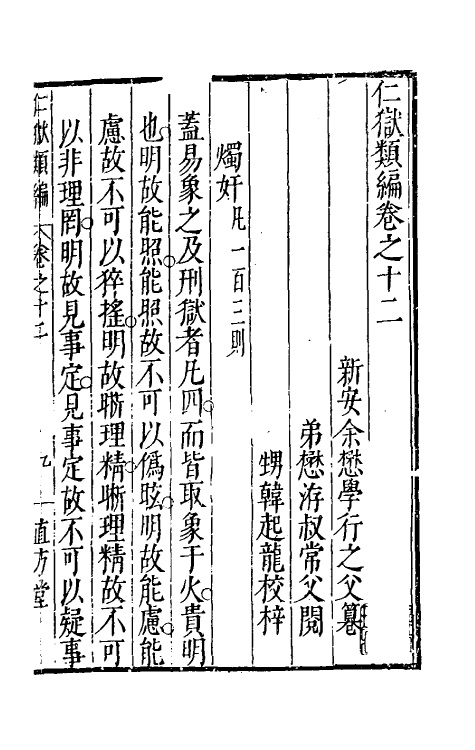 仁獄類編卷之十二
新安余懋學行之父纂
弟懋洊叔常父閱
甥韓起龍校梓
燭奸凡一百三則
蓋易象之及刑獄者凡四而皆取象于火貴明
也明故能照能照故不可以僞眩明故能慮能
慮故不可以猝搖明故晰理精晰理精故不可
以非理罔明故見事定見事定故不可以疑事
仁獄類編 卷之十二 九 直方堂